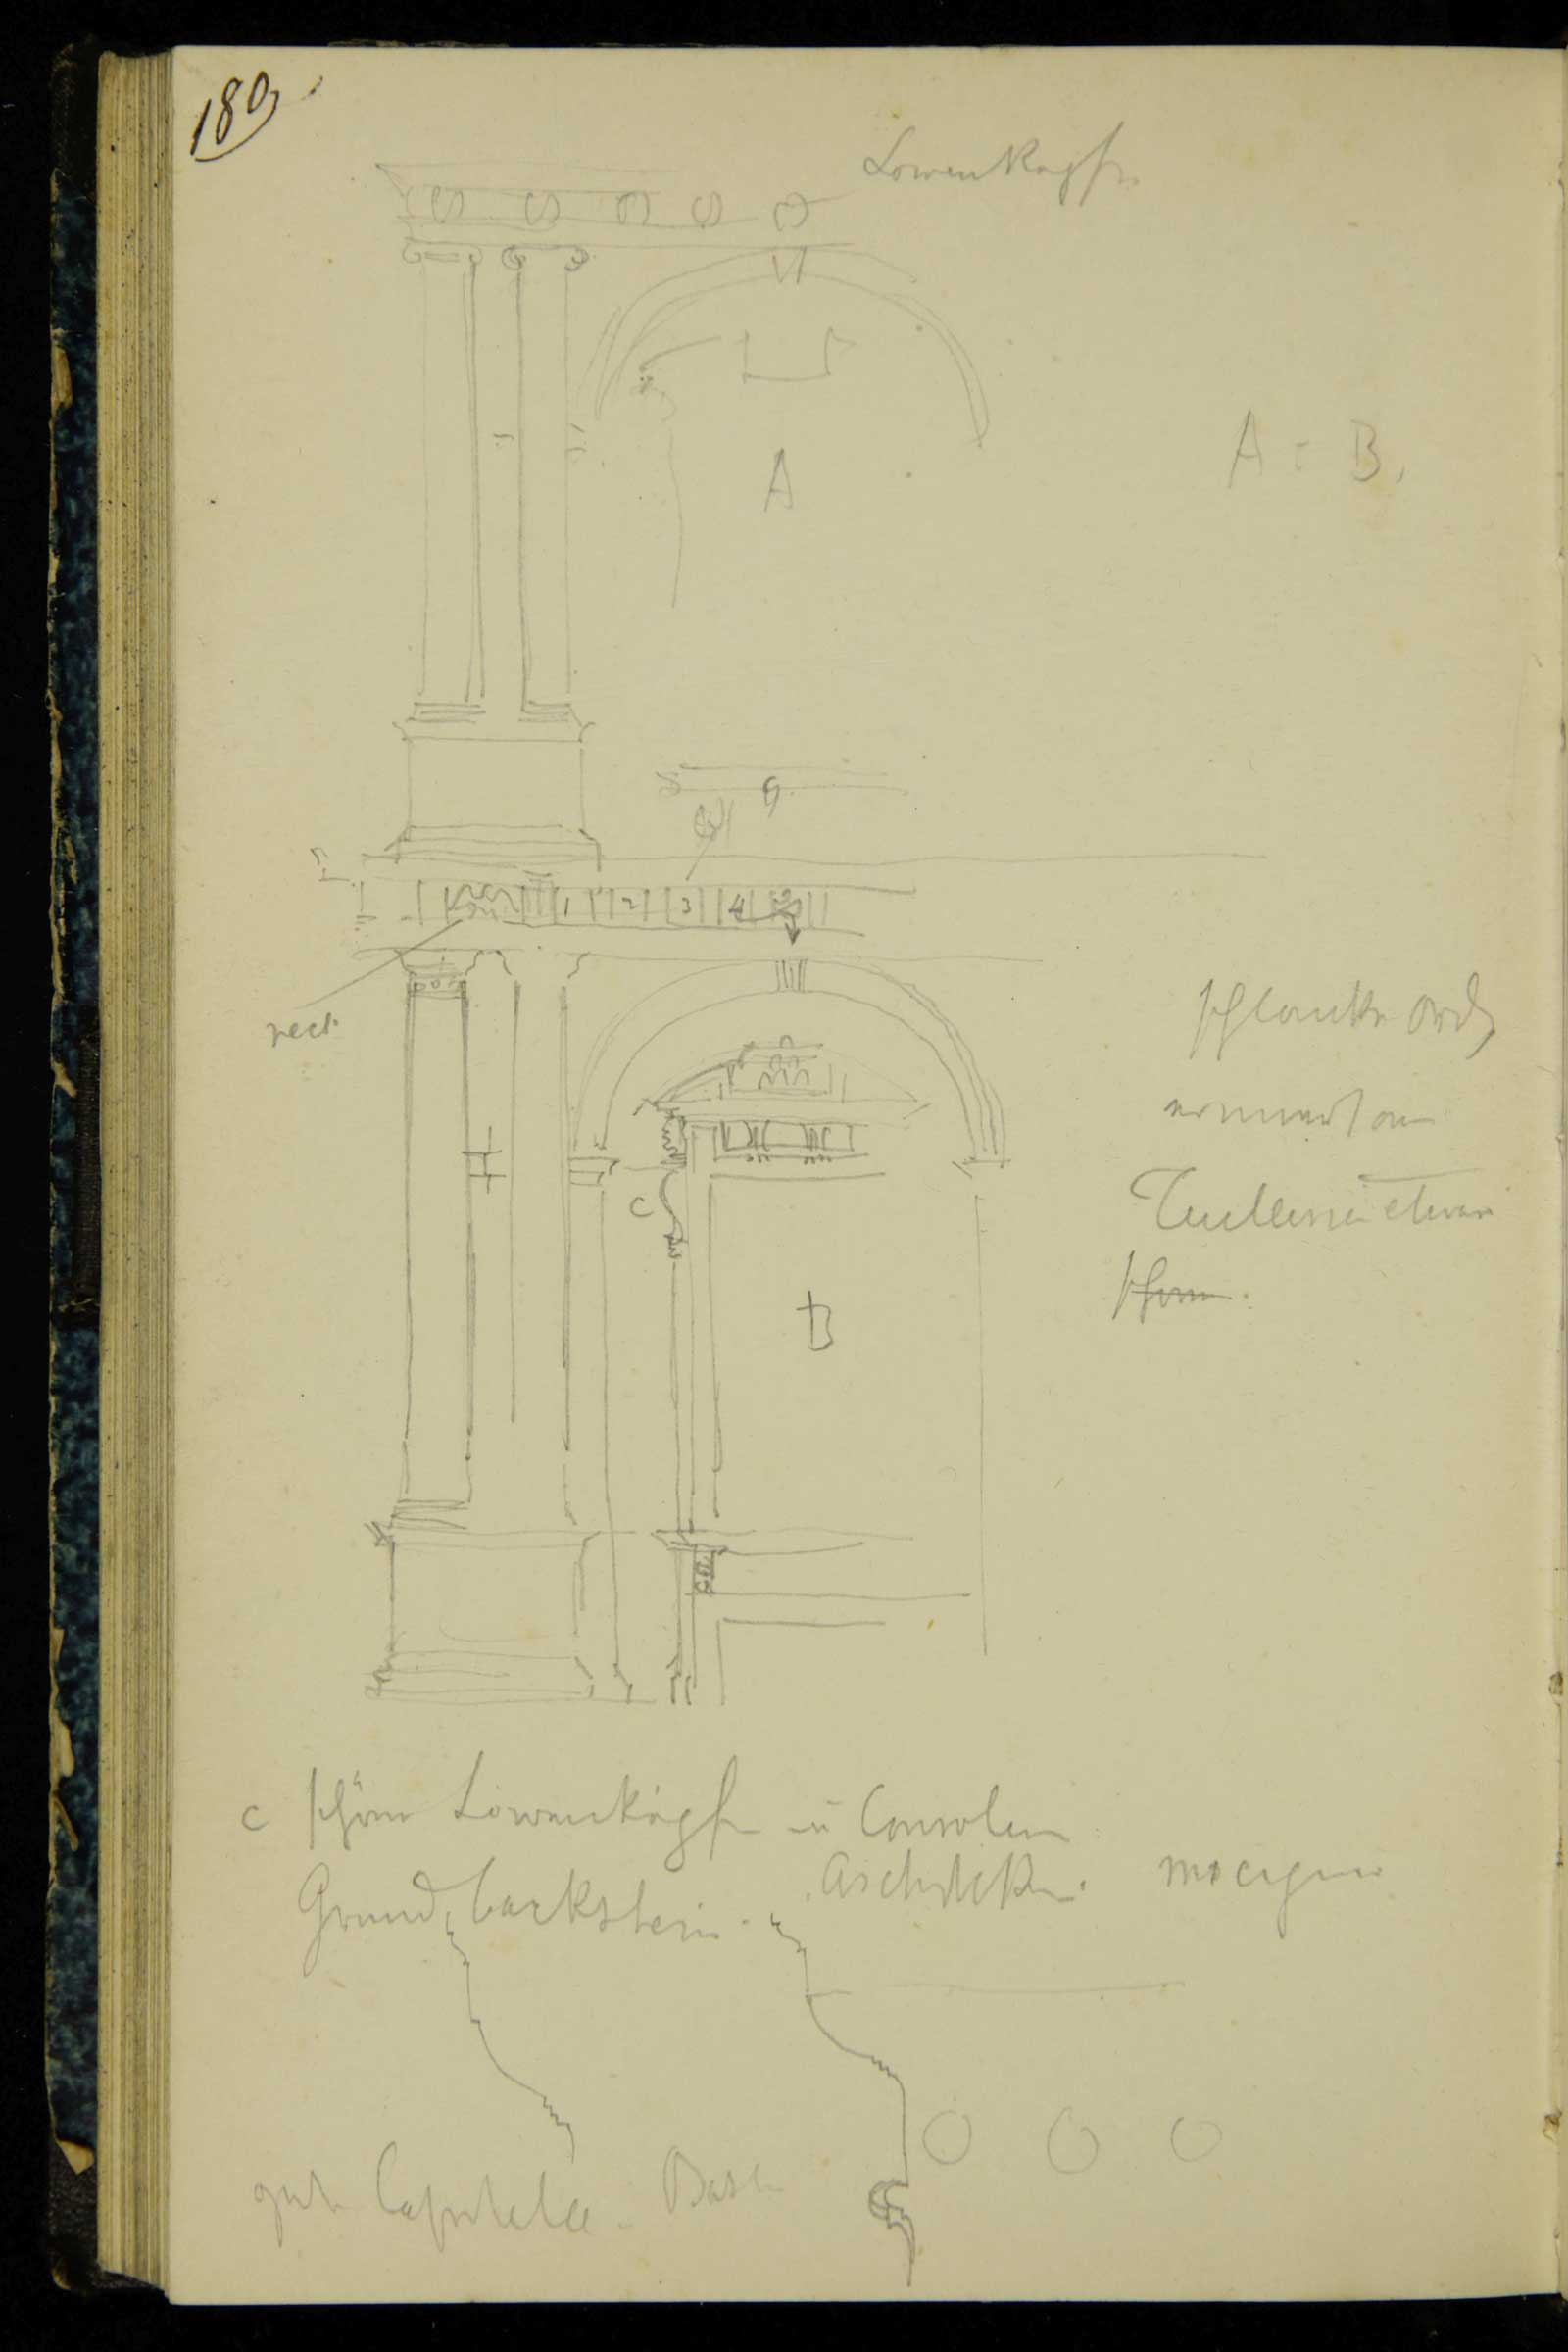 180,
Löwenköpfe
A = B.
A
G
1 2 3 4
rect.
schlanke Ord,
erinnert an
Tuillerien etwas
schöner.
C
B
c schöne Löwenköpfe u Consolen
Grund, backstein. Architektur. macigno
gute Capitelle. Base